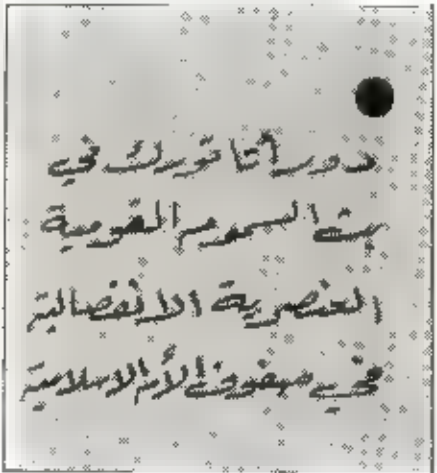 دور أتاتورك في
بث السموم القومية
العنصرية الانفصالية
في صفوف الأمم الاسلامية